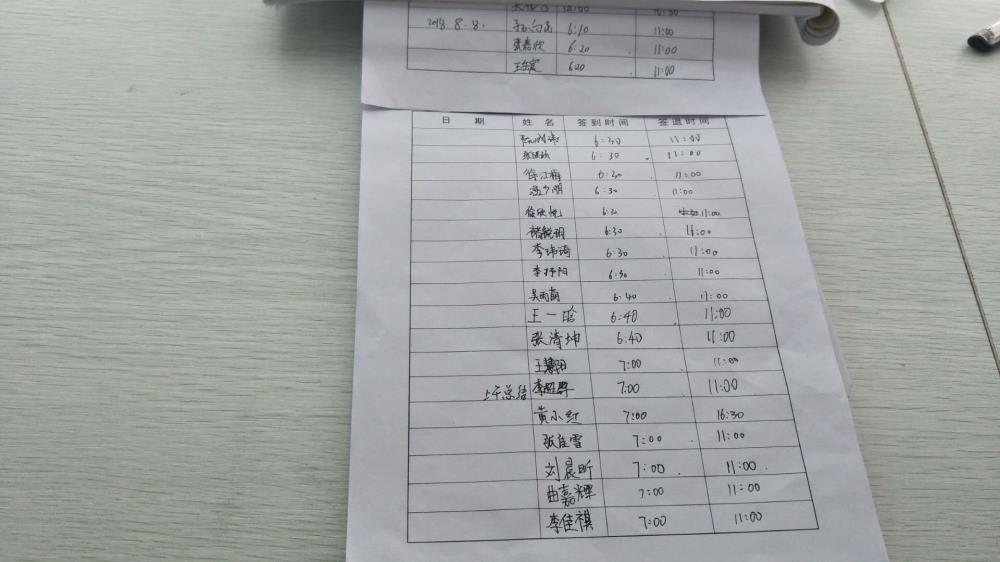 16:00 16:30
2018.8.8. 6:10 11:00
张嘉欣 6:20 11:00
620 11:00
日 期 姓 名 签到时间 签退时间
11:00
6:30 11:00
徐江梅 11:00
6:30 11:00
11:00
褚毓玥 6:30 11:00
李玮琦 6:30 11:00
李抒阳 6:30 11:00
吴雨菡 6:40 11:00
王一晗 6:40 11:00
张清坤 6:40 11:00
王慧阳 7:00 11:00
上午总结 7:00 11:00
黄小纪 7:00 16:30
张佳雪 7:00 11:00
刘晨昕 7:00 11:00
曲嘉辉 7:00 11:00
李佳祺 7:00 11:00